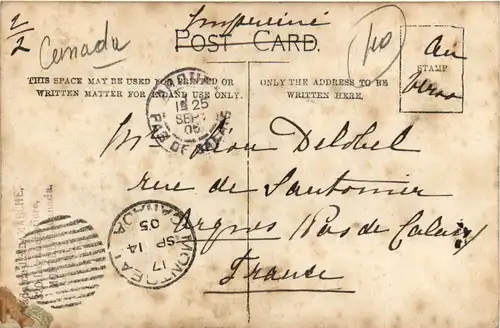 1/2
Imprimé
Canada
POST CARD.
THIS SPACE MAY BE USED FOR PRINTED OR
WRITTEN MATTER FOR INLAND USE ONLY.
ONLY THE ADDRESS TO BE
WRITTEN HERE.
STAMP
au
verso
15 25
SEPT
05
PAS DE CALAIS
Mr Léon Delobel
rue de
Arques Pas de Calais
France
MONTREAL
CANADA
17
SP 14
05
Canada.